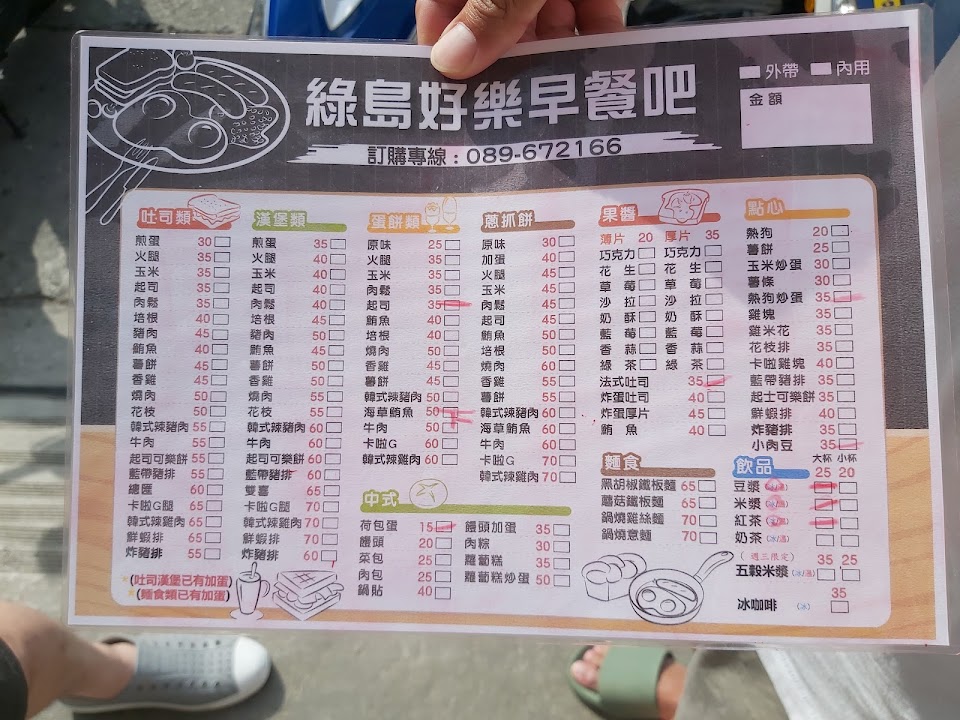 綠島好樂早餐吧
外帶 內用
金額
訂購專線：089-672166
吐司類
煎蛋 30
火腿 35
玉米 35
起司 35
肉鬆 35
培根 40
豬肉 45
鮪魚 40
薯餅 45
香雞 45
燒肉 50
花枝 50
韓式辣豬肉 55
牛肉 55
起司可樂餅 55
藍帶豬排 55
總匯 60
卡啦G腿 65
韓式辣雞肉 65
鮮蝦排 65
炸豬排 55
*(吐司漢堡已有加蛋)
*(麵食類已有加蛋)
漢堡類
煎蛋 35
火腿 40
玉米 40
起司 40
肉鬆 40
培根 45
豬肉 50
鮪魚 45
薯餅 50
香雞 50
燒肉 55
花枝 55
韓式辣豬肉 60
牛肉 60
起司可樂餅 60
藍帶豬排 60
雙喜 65
卡啦G腿 70
韓式辣雞肉 70
鮮蝦排 70
炸豬排 60
蛋餅類
原味 25
火腿 35
玉米 35
肉鬆 35
起司 35
鮪魚 40
培根 40
燒肉 50
香雞 45
薯餅 45
韓式辣豬肉 50
海草鮪魚 50
牛肉 50
卡啦G 60
韓式辣雞肉 60
蔥抓餅
原味 30
加蛋 40
火腿 45
玉米 45
肉鬆 45
起司 45
鮪魚 50
培根 50
燒肉 60
香雞 55
薯餅 55
韓式辣豬肉 60
海草鮪魚 60
牛肉 60
卡啦G 70
韓式辣雞肉 70
中式
荷包蛋 15
饅頭 20
菜包 25
肉包 25
鍋貼 40
饅頭加蛋 35
肉粽 30
蘿蔔糕 35
蘿蔔糕炒蛋 50
果醬
薄片 20 厚片 35
巧克力 巧克力
花生 花生
草莓 草莓
沙拉 沙拉
奶酥 奶酥
藍莓 藍莓
香蒜 香蒜
綠茶 綠茶
法式吐司 35
炸蛋吐司 40
炸蛋厚片 45
鮪魚 40
麵食
黑胡椒鐵板麵 65
蘑菇鐵板麵 65
鍋燒雞絲麵 70
鍋燒意麵 70
點心
熱狗 20
薯餅 25
玉米炒蛋 30
薯條 30
熱狗炒蛋 35
雞塊 35
雞米花 35
花枝排 35
卡啦雞塊 40
藍帶豬排 35
起士可樂餅 35
鮮蝦排 40
炸豬排 35
小肉豆 35
飲品
大杯 小杯
25 20
豆漿
米漿
紅茶
奶茶 (冰/溫)
(週三限定) 35 25
五穀米漿 (冰/溫)
35
冰咖啡 (冰)